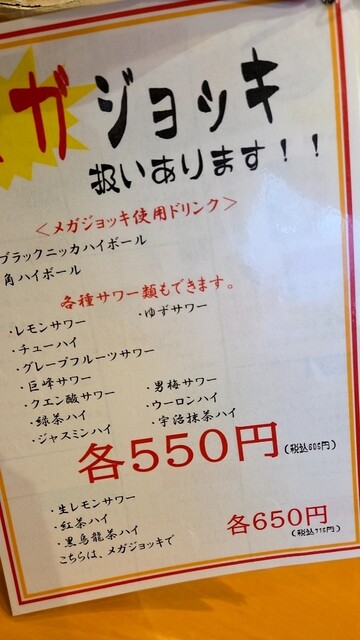 メガジョッキ
扱いあります!!
<メガジョッキ使用ドリンク>
ブラックニッカハイボール
角ハイボール
各種サワー類もできます。
・レモンサワー ・ゆずサワー
・チューハイ
・グレープフルーツサワー
・巨峰サワー ・男梅サワー
・クエン酸サワー ・ウーロンハイ
・緑茶ハイ ・宇治抹茶ハイ
・ジャスミンハイ
各550円(税込605円)
・生レモンサワー
・紅茶ハイ
・黒烏龍茶ハイ
こちらは、メガジョッキで
各650円
(税込715円)